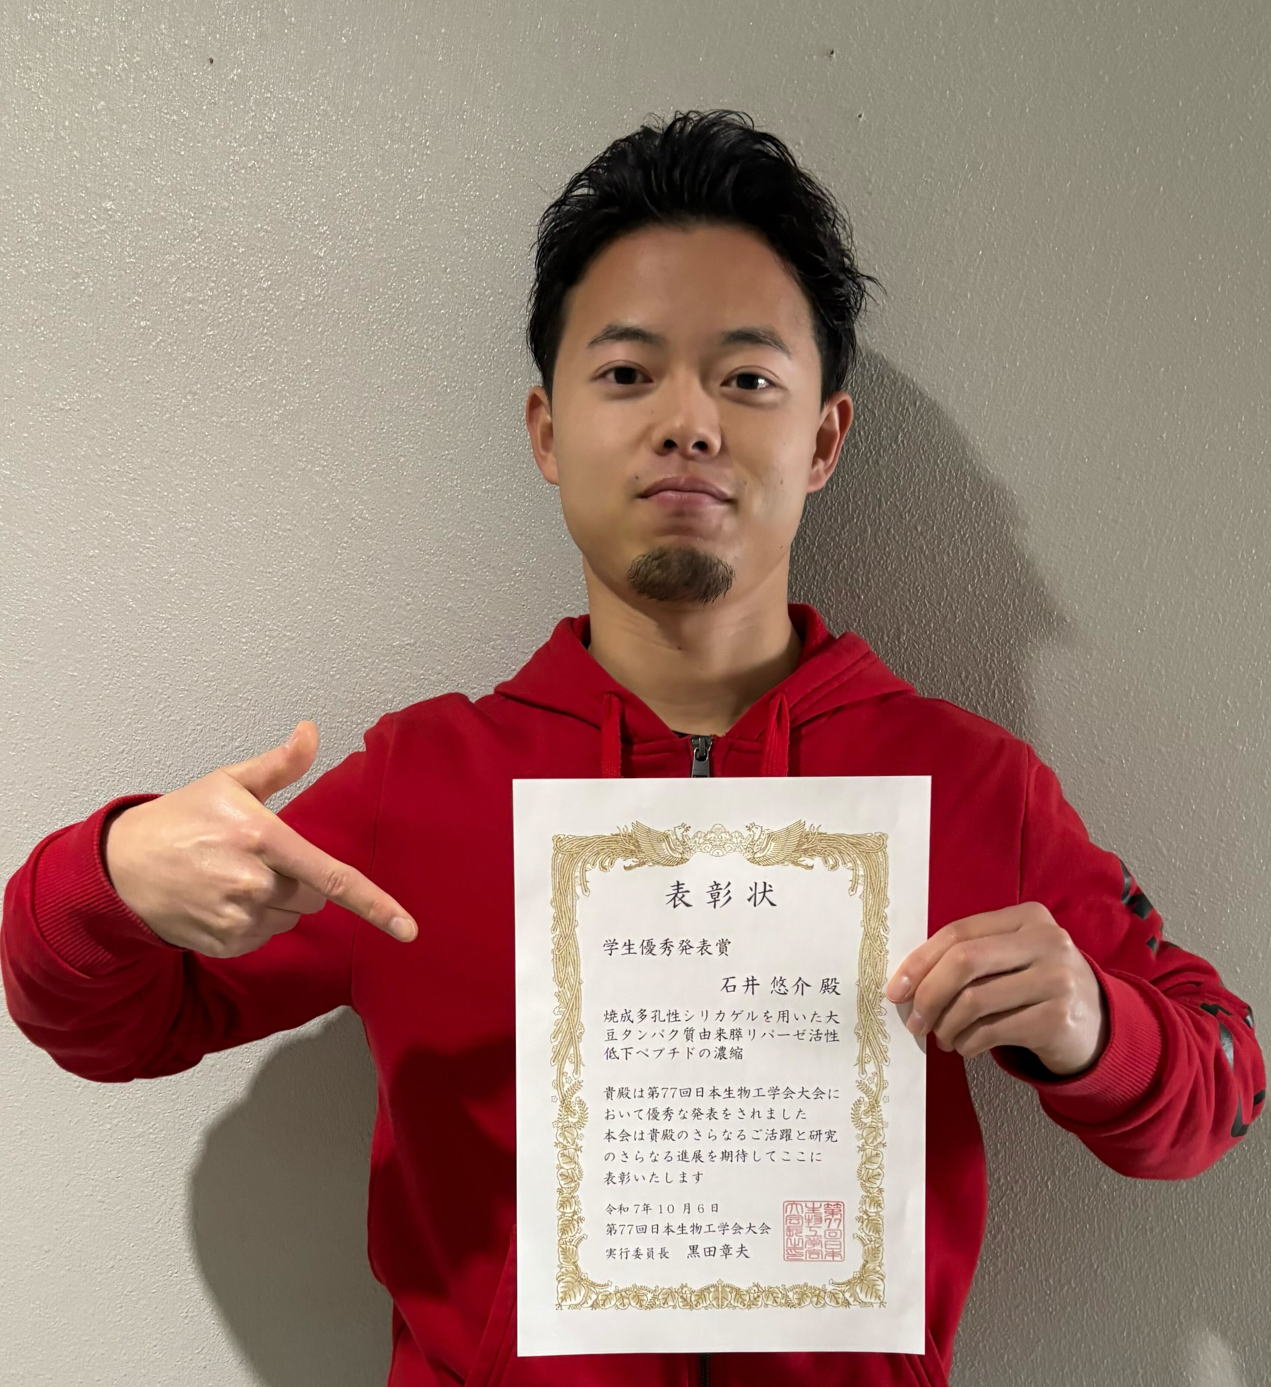 表彰状
学生優秀発表賞
石井 悠介 殿
焼成多孔性シリカゲルを用いた大
豆タンパク質由来膵リパーゼ活性
低下ペプチドの濃縮
貴殿は第77回日本生物工学会大会に
おいて優秀な発表をされました
本会は貴殿のさらなるご活躍と研究
のさらなる進展を期待してここに
表彰いたします
令和7年10月6日
第77回日本生物工学会大会
実行委員長 黒田章夫